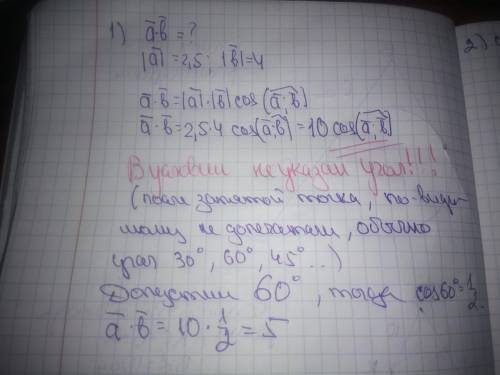 1) a̅·b̅ = ?
|a̅| = 2,5 ; |b̅| = 4
a̅·b̅ = |a̅|·|b̅| cos(a̅;b̅)
a̅·b̅ = 2,5·4 cos(a̅;b̅) = 10 cos(a̅;b̅)
В условии не указан угол!!!
(после запятой точка, по-види-
мому не допечатали, обычно
угол 30°, 60°, 45°...)
Допустим 60°, тогда cos60° = 1/2.
a̅·b̅ = 10 · 1/2 = 5
2)